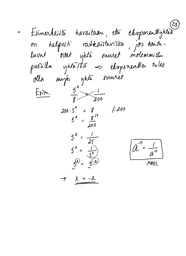 (13)
• Esimerkistä havaitaan, että eksponenttiyhtälö
on helposti ratkaistavissa, jos kanta-
luvut ovat yhtä suuret molemmilla
puolilla yhtälöä → eksponenttien tulee
olla myös yhtä suuret
Esim
5ˣ/8 = 1/200
200·5ˣ = 8 |:200
5ˣ = 8/200
5ˣ = 1/25
5ˣ = 1/5²
5ˣ = 5⁻²
→ x = -2
a⁻ⁿ = 1/aⁿ
MAOL